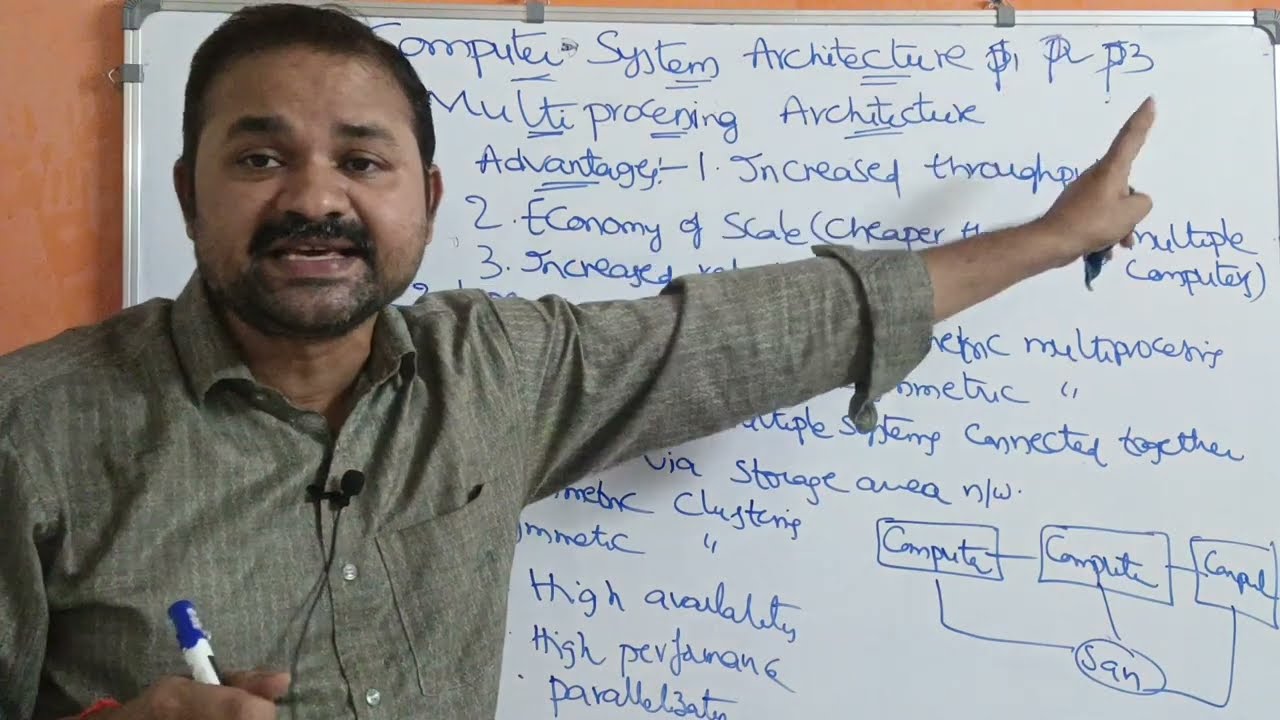 Computer System Architecture P1 P2 P3
Multi processing Architecture
Advantages:- 1. Increased throughput
2. Economy of Scale (Cheaper multiple
Computers)
3. Increased
metric multiprocessing
mmetric "
multiple systems Connected together
via storage area n/w.
mmetric Clustering
mmetric "
High availability
High performance
parallelization
Computer Computer Comput
San